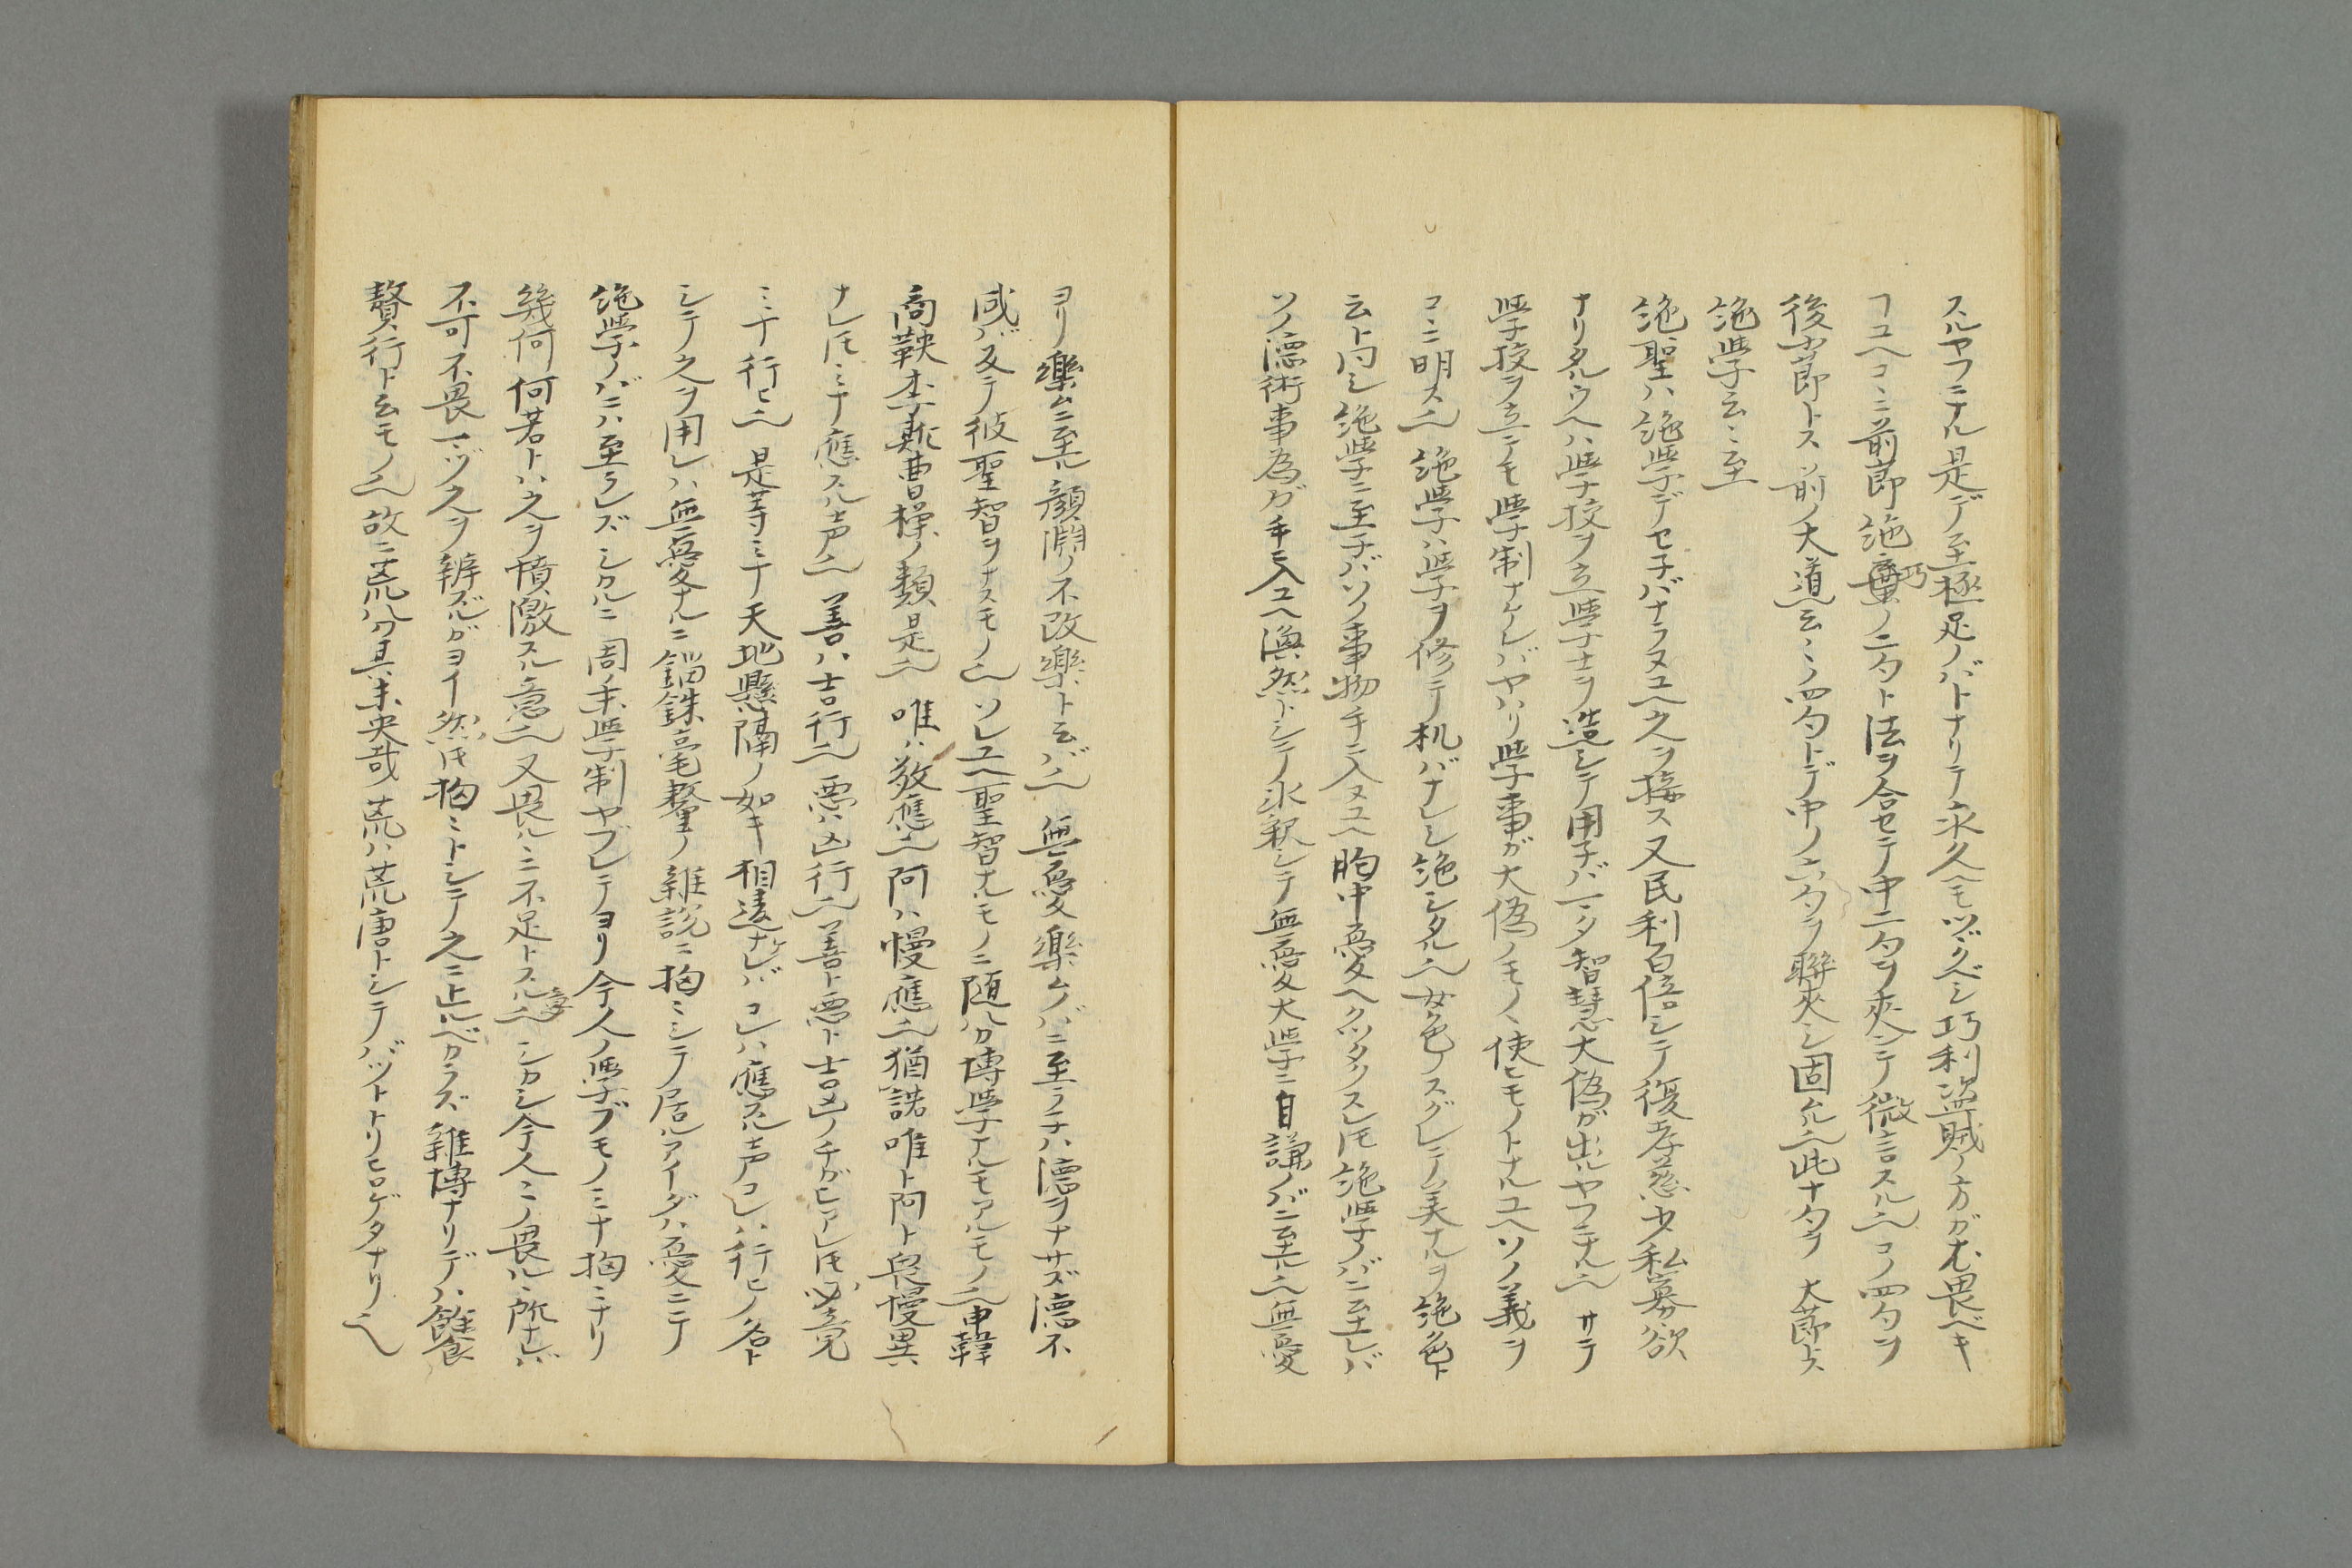 スルヤフニナル是デ至極足ノバトナリテ永久ヘモツヾクベシ巧利盗賊ノ方ガ尤畏ベキ
ヿユヘコヽニ前節絶棄巧ノ二句ト法ヲ合セテ中二句ヲ夾シテ微言スル也コノ四句ヲ
後小節トス前ノ大道云〻ノ四句トデ中ノ六句ヲ聯夾シ固ムル也此十句ヲ大節トス
絶學云〻至
絶聖ハ絶學デセネバナラヌユヘ之ヲ接ス又民利百倍シテ復孝慈少私寡欲
ナリタルウヘハ學校ヲ立學士ヲ造シテ用子バマタ智慧大偽ガ出ルヤフニナル也サテ
學校ヲ立テモ學制ナケレバヤハリ學事ガ大偽ノモノヽ使ヒモノトナルユヘソノ義ヲ
コヽニ明ス也絶學ハ學ヲ修テ机バナレシ絶シタル也女色ノスグレテ美ナルヲ絶色ト
云ト同シ絶學ニ至子バソノ事物手ニ入ヌユヘ胸中憂ヘクツタクスレ𪜈絶學ノバニ至レバ
ソノ德術事為ガ手ニ入ユヘ渙然トシテ氷釈シテ無憂大學ニ自謙ノバニ至ル也無憂
ヨリ樂ムニ至ル顔淵ノ不改樂ト云バ也無憂樂ムバニ至ラ子ハ德ヲナサズ德不
成バ反テ彼聖智ヲナスモノ也ソレユヘ聖智ナルモノニ随ルカ博學ナルモアルモノ也申韓
商鞅李斯曹操ノ類是也唯ハ敬應也阿ハ慢應也猶諾唯ト阿ト畏慢異
ナレ𪜈ミナ應スル声也善ハ吉行也悪ハ凶行也善ト悪ト吉凶ノチガヒアレ𪜈必竟
ミナ行ヒ也是等ミナ天地懸隔ノ如キ相違ナケレバコレハ應スル声コレハ行ヒノ名ト
シテ之ヲ用レハ無憂ナルニ錙銖毫釐ノ雜説ニ拘ミシテ居ルアイダハ憂ニテ
絶學ノバニハ至ラレズシカルニ周ノ末學制ヤブレテヨリ今人ノ學ブモノミナ拘ミナリ
幾何何若トハ之ヲ憤激スル意也又畏ルヽニ不足トスル意也シカシ今人ミノ畏ルヽ所ナレバ
不可不畏マヅ之ヲ辨ズルガヨイ然𪜈拘ミトシテ之ニ止ルベカラズ雜博ナリデハ餘食
贅行ト云モノ也故ニ荒ハ兮其未央哉ノ荒ハ荒唐トシテバツトトリヒロゲタナリ也